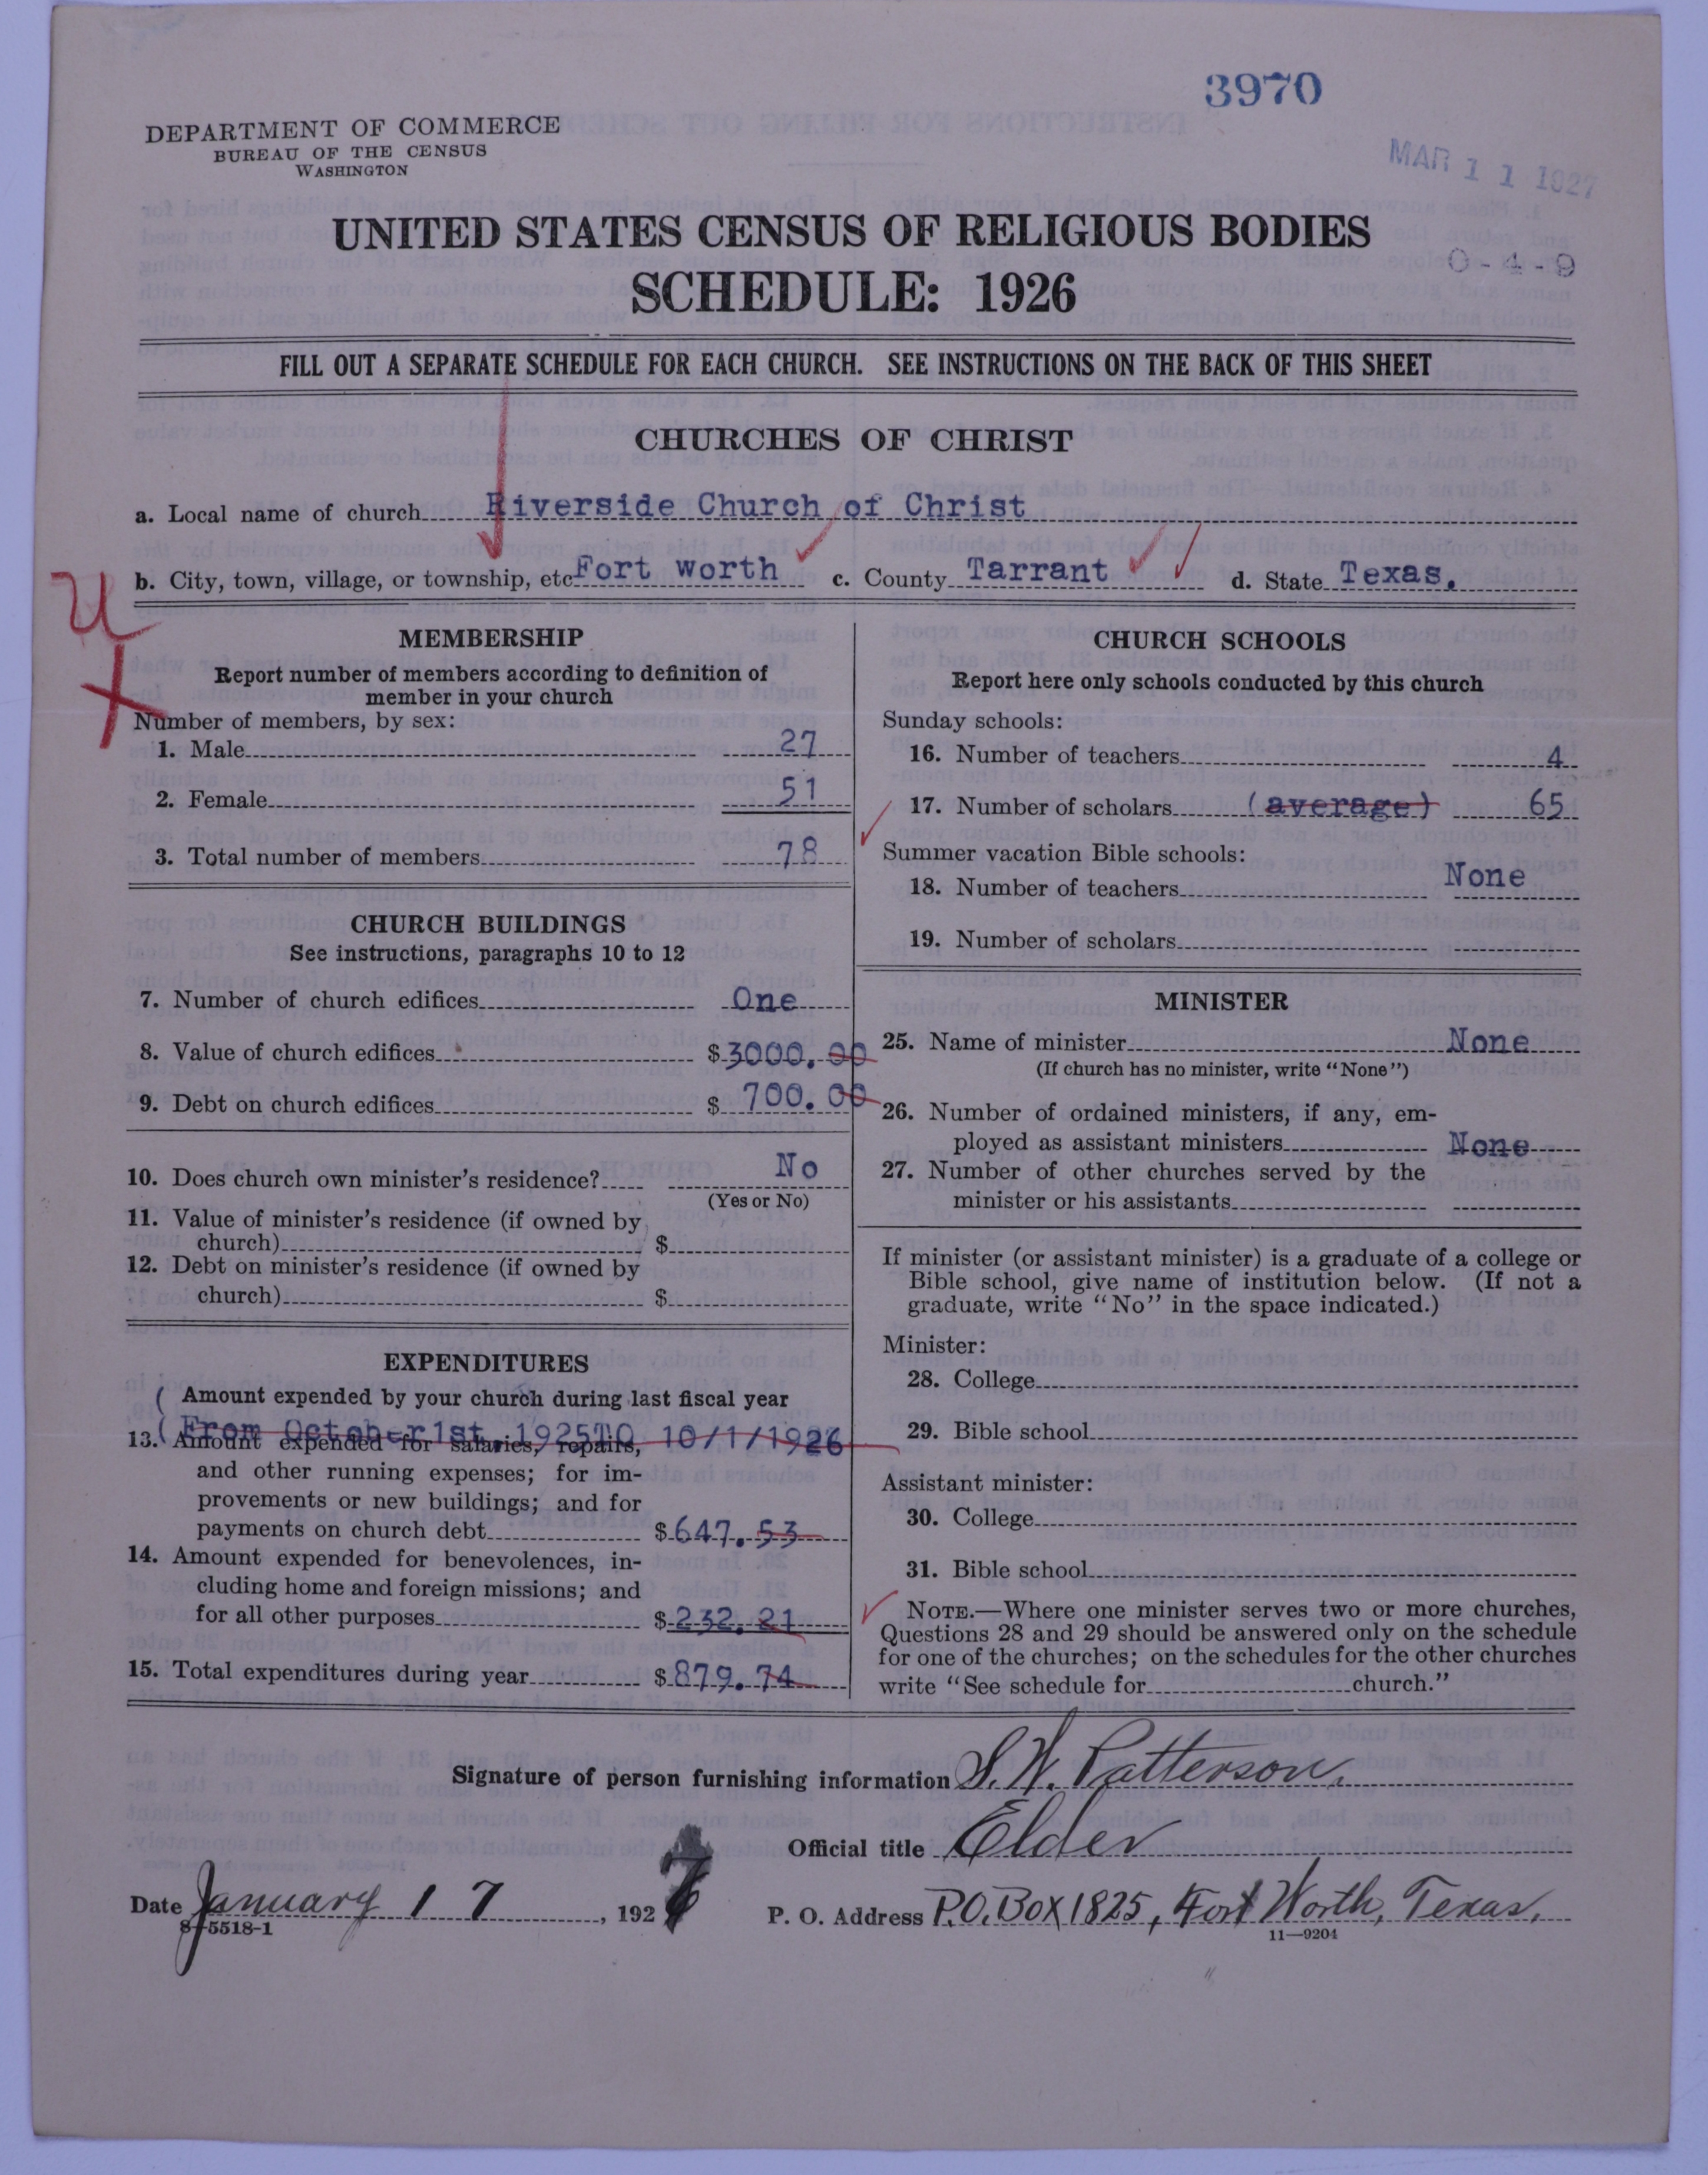 3970
DEPARTMENT OF COMMERCE
BUREAU OF THE CENSUS
WASHINGTON
MAR 11 1927
UNITED STATES CENSUS OF RELIGIOUS BODIES
0-4-9
SCHEDULE: 1926
FILL OUT A SEPARATE SCHEDULE FOR EACH CHURCH. SEE INSTRUCTIONS ON THE BACK OF THIS SHEET
CHURCHES OF CHRIST
a. Local name of church Riverside Church of Christ
b. City, town, village, or township, etc Fort worth c. County Tarrant d. State Texas.
MEMBERSHIP
Report number of members according to definition of
member in your church
Number of members, by sex:
1. Male 27
2. Female 51
3. Total number of members 78
CHURCH BUILDINGS
See instructions, paragraphs 10 to 12
7. Number of church edifices One
8. Value of church edifices $ 3000.00
9. Debt on church edifices $ 700.00
10. Does church own minister's residence? No
(Yes or No)
11. Value of minister's residence (if owned by
church) $
12. Debt on minister's residence (if owned by
church) $
EXPENDITURES
( Amount expended by your church during last fiscal year
( From October 1st, 1925TO 10/1/1926
13. Amount expended for salaries, repairs,
and other running expenses; for im-
provements or new buildings; and for
payments on church debt $ 647.53
14. Amount expended for benevolences, in-
cluding home and foreign missions; and
for all other purposes $ 232.21
15. Total expenditures during year $ 879.74
CHURCH SCHOOLS
Report here only schools conducted by this church
Sunday schools:
16. Number of teachers 4
17. Number of scholars (average) 65
Summer vacation Bible schools:
18. Number of teachers None
19. Number of scholars
MINISTER
25. Name of minister None
(If church has no minister, write "None")
26. Number of ordained ministers, if any, em-
ployed as assistant ministers None
27. Number of other churches served by the
minister or his assistants
If minister (or assistant minister) is a graduate of a college or
Bible school, give name of institution below. (If not a
graduate, write "No" in the space indicated.)
Minister:
28. College
29. Bible school
Assistant minister:
30. College
31. Bible school
NOTE.—Where one minister serves two or more churches,
Questions 28 and 29 should be answered only on the schedule
for one of the churches; on the schedules for the other churches
write "See schedule for church."
Signature of person furnishing information S. W. Patterson,
Official title Elder
Date January 17, 1927 P. O. Address P.O. Box 1825, Fort Worth, Texas.
8-5518-1
11—9204